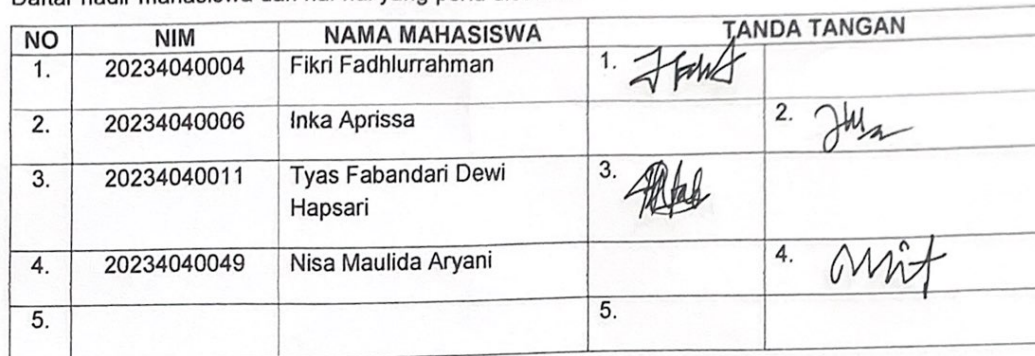 NO NIM NAMA MAHASISWA TANDA TANGAN
1. 20234040004 Fikri Fadhlurrahman 1.
2. 20234040006 Inka Aprissa 2.
3. 20234040011 Tyas Fabandari Dewi 3.
Hapsari
4. 20234040049 Nisa Maulida Aryani 4.
5. 5.